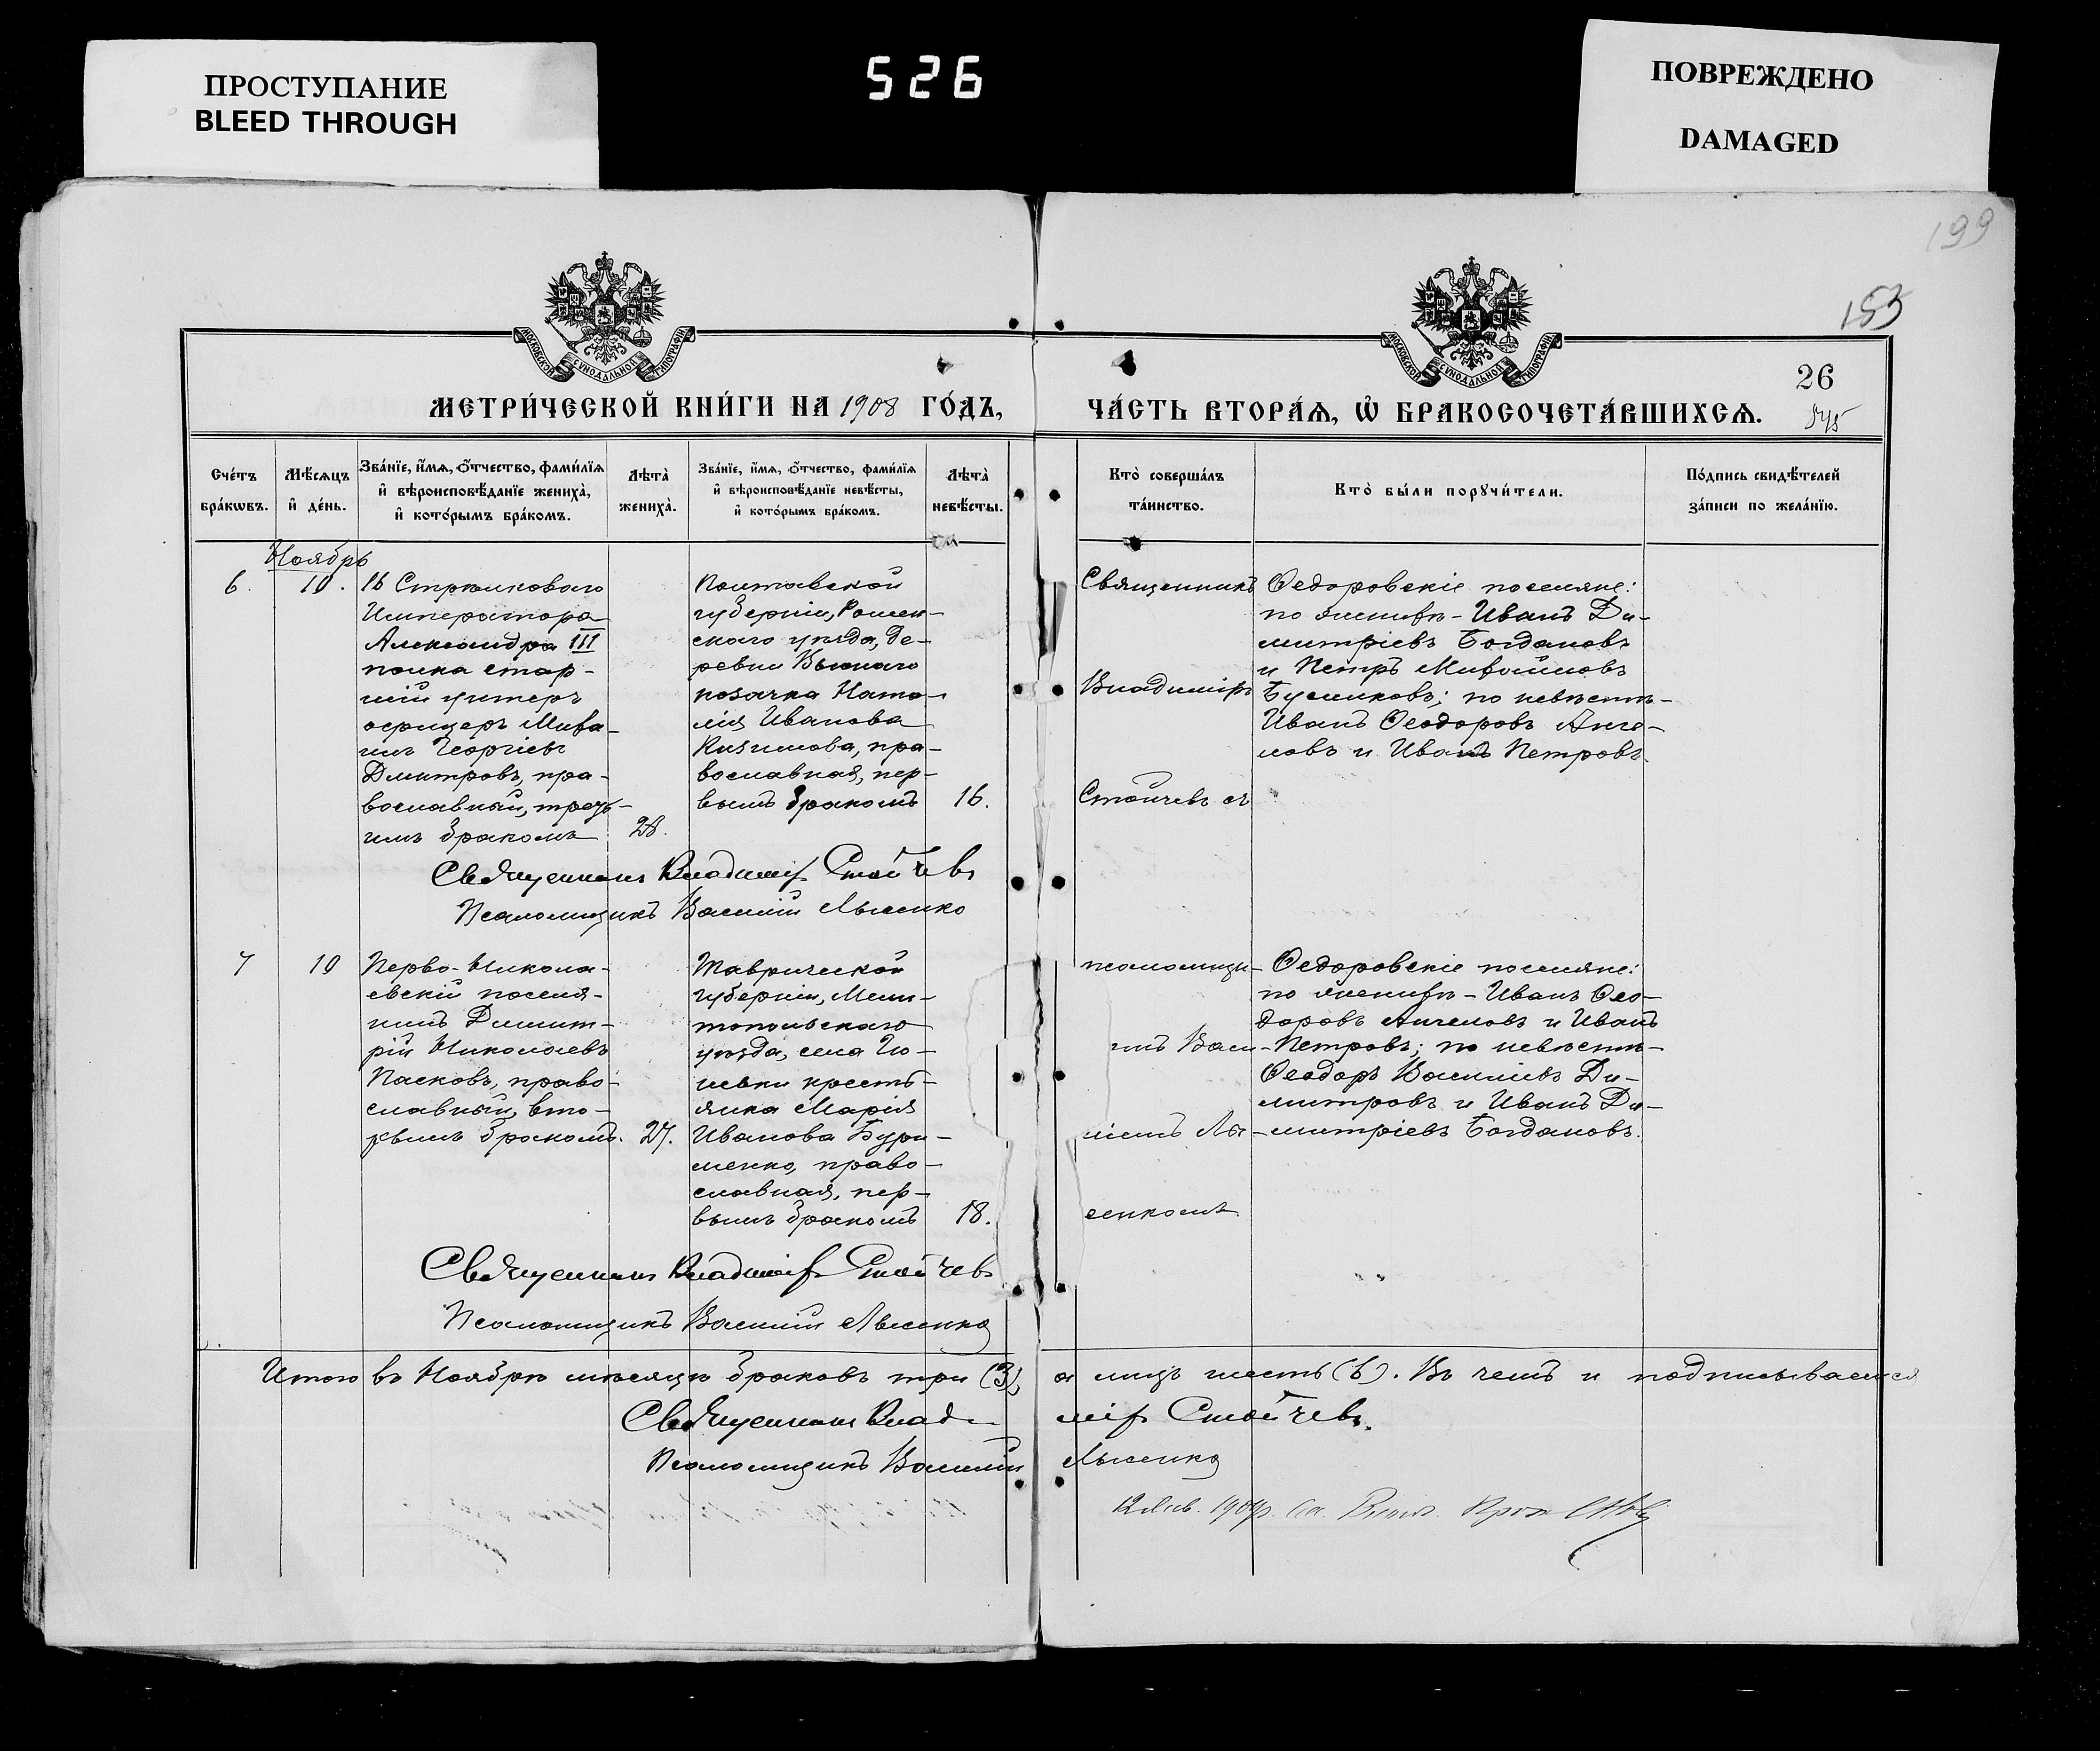 ПРОСТУПАНИЕ
BLEED THROUGH
526
ПОВРЕЖДЕНО
DAMAGED
199
153
МОСКОВСКОЙ СУНОДАЛЬНОЙ ТИПОГРАФІИ
МОСКОВСКОЙ СУНОДАЛЬНОЙ ТИПОГРАФІИ
26
МЕТРИ́ЧЕСКОЙ КНИ́ГИ НА 1908 ГО́ДЪ,
ЧА́СТЬ ВТОРА́Ѧ, Ѡ҆ БРАКОСОЧЕТА́ВШИХСѦ.
Сче́тъ бра́кѡвъ.
Мѣ́сѧцъ и҆ де́нь.
Зва́нїе, и҆́мѧ, ѻ҆́тчество, фами́лїѧ
и҆ вѣроисповѣ́данїе жениха̀,
и҆ кото́рымъ бра́комъ.
Лѣта̀ жениха̀.
Зва́нїе, и҆́мѧ, ѻ҆́тчество, фами́лїѧ
и҆ вѣроисповѣ́данїе невѣ́сты,
и҆ кото́рымъ бра́комъ.
Лѣта̀ невѣ́сты.
Кто̀ соверша́лъ
та́инство.
Кто̀ бы́ли порꙋчи́тели.
По́дпись свидѣ́телей
за́писи по жела́нїю.
Ноябрь
6.
10.
16 Стрѣлковаго
Императора
Александра III
полка стар-
шій унтеръ
офицеръ Миха-
илъ Георгіевъ
Дмитровъ, пра-
вославный, треть-
имъ бракомъ
28.
Полтавской
губерніи, Ромен-
скаго уѣзда, де-
ревни Вьюнаго
козачка Ната-
лія Иванова
Кизимова, пра-
вославная, пер-
вымъ бракомъ
16.
Священникъ
Владиміръ
Стойчевъ съ
Ѳедоровскіе поселяне:
по женихѣ - Иванъ Ди-
митріевъ Богдановъ
и Петръ Михайловъ
Бусликовъ; по невѣстѣ -
Иванъ Ѳеодоровъ Анге-
ловъ и Иванъ Петровъ.
Священникъ Владиміръ Стойчевъ
Псаломщикъ Василій Лысенко
7
10
Перво-Никола-
евскій поселя-
нинъ Димит-
рій Николаевъ
Пасковъ, право-
славный, вто-
рымъ бракомъ.
27.
Таврической
губерніи, Мели-
топольскаго
уѣзда, села Го-
левки кресть-
янка Марія
Иванова Бури-
менко, право-
славная, пер-
вымъ бракомъ
18.
псаломщи-
мъ Васи-
ліемъ Лы-
сенкомъ
Ѳедоровскіе поселяне:
по женихѣ - Иванъ Ѳео-
доровъ Ангеловъ и Иванъ
Петровъ; по невѣстѣ -
Ѳеодоръ Василіевъ Ди-
митровъ и Иванъ Ди-
митріевъ Богдановъ.
Священникъ Владиміръ Стойчевъ
Псаломщикъ Василій Лысенко
Итого въ Ноябрѣ мѣсяцѣ браковъ три (3), а лицъ шесть (6). Въ чемъ и подписываемся
Священникъ Владиміръ Стойчевъ.
Псаломщикъ Василій Лысенко
12 Янв. 1909 г.